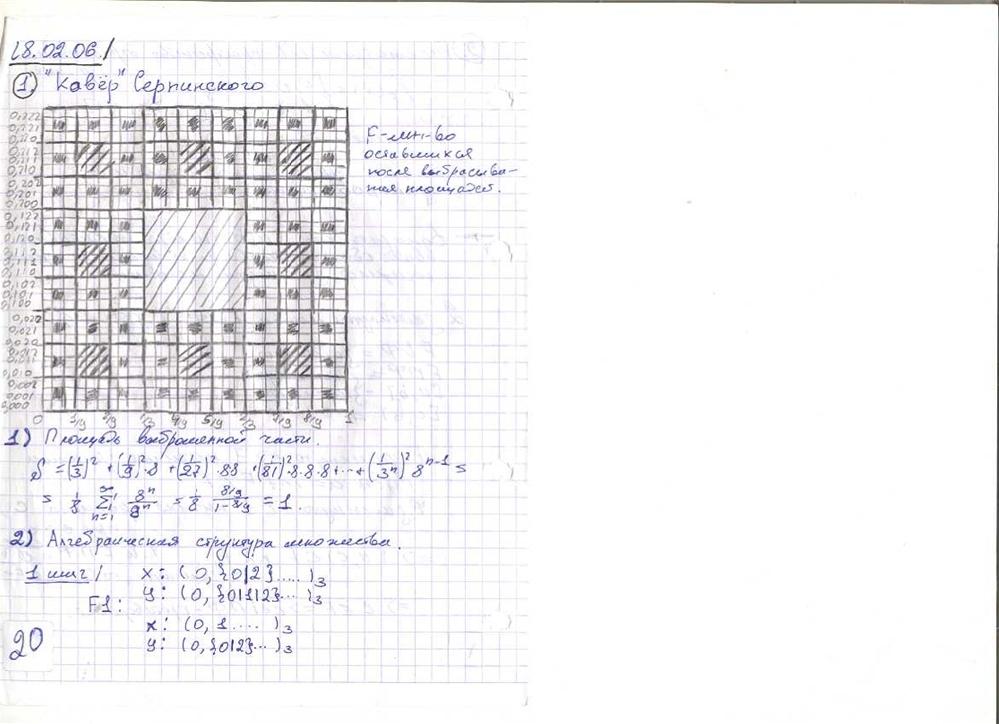 18.02.06.
① "Кавёр" Серпинского
0,222
0,221
0,220
0,212
0,211
0,210
0,202
0,201
0,200
0,122
0,121
0,120
0,112
0,111
0,110
0,102
0,101
0,100
0,022
0,021
0,020
0,012
0,011
0,010
0,002
0,001
0,000
F-мн-во
оставшихся
после выбрасыва-
ния площадей.
0 1/9 2/9 1/3 4/9 5/9 2/3 7/9 8/9 1
1) Площадь выброшенной части.
S = (1/3)² + (1/9)²·8 + (1/27)²·88 + (1/81)²·8·8·8 + ... + (1/3ⁿ)² 8ⁿ⁻¹ =
= 1/8 ∑ₙ₌₁^∞ 8ⁿ/9ⁿ = 1/8 (8/9)/(1-8/9) = 1.
2) Алгебраическая структура множества.
1 шаг/ x: (0,{0|2}.....)₃
F1: y: (0,{0|1|2}...)₃
x: (0, 1....)₃
y: (0,{0|2}...)₃
20